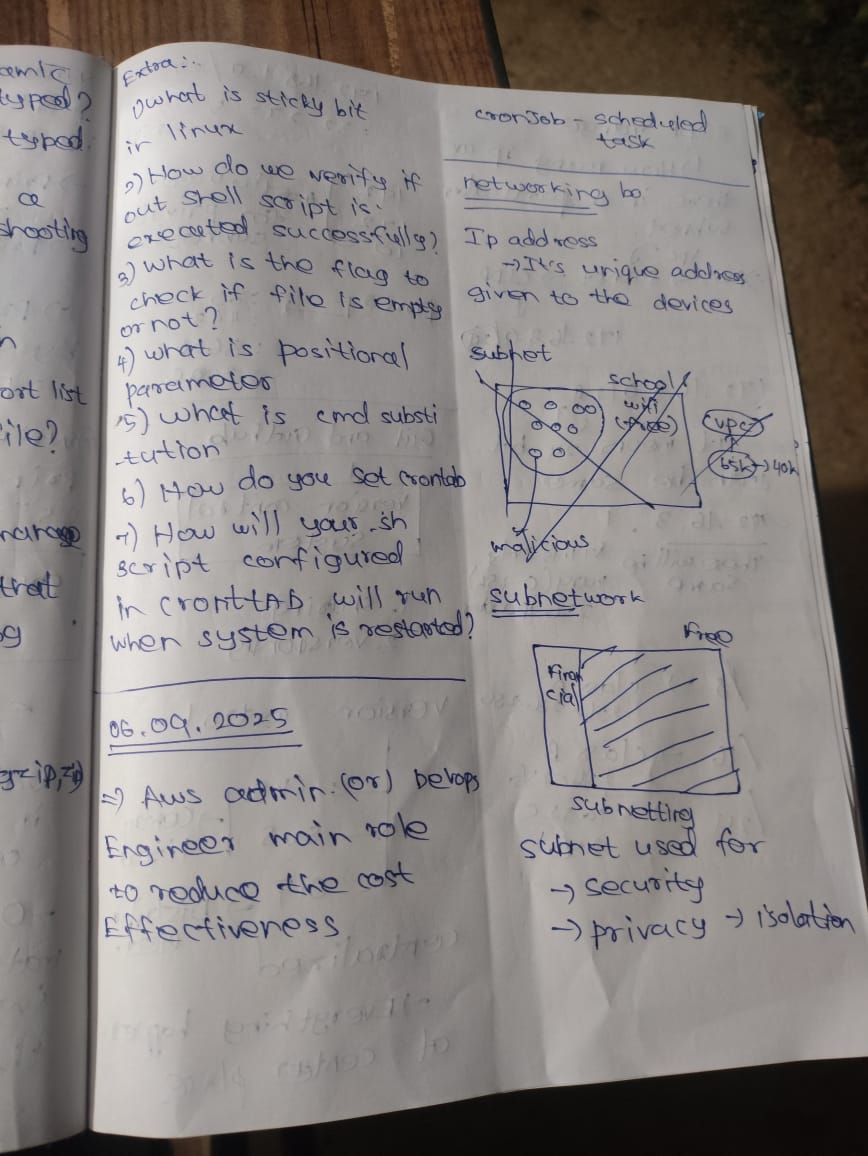 typed?
typed.
ce
shooting
ort list
ile?
that
Extra:-
1) what is sticky bit
in linux
2) How do we verify if
out shell script is
executed successfully?
3) what is the flag to
check if file is empty
or not?
4) what is positional
parameter
5) what is cmd substi
tution
6) How do you set crontab
7) How will your .sh
script configured
in cronttab will run
when system is restarted?
06.09.2025
=> Aws admin (or) Devops
Engineer main role
to reduce the cost
Effectiveness
cronjob - scheduled
task
networking bo
Ip address
→ It's unique address
given to the devices
subnet
school
wifi
(free)
vpc
65k → 40k
malicious
subnetwork
Free
Finan
cial
subnetting
subnet used for
→ security
→ privacy → isolation